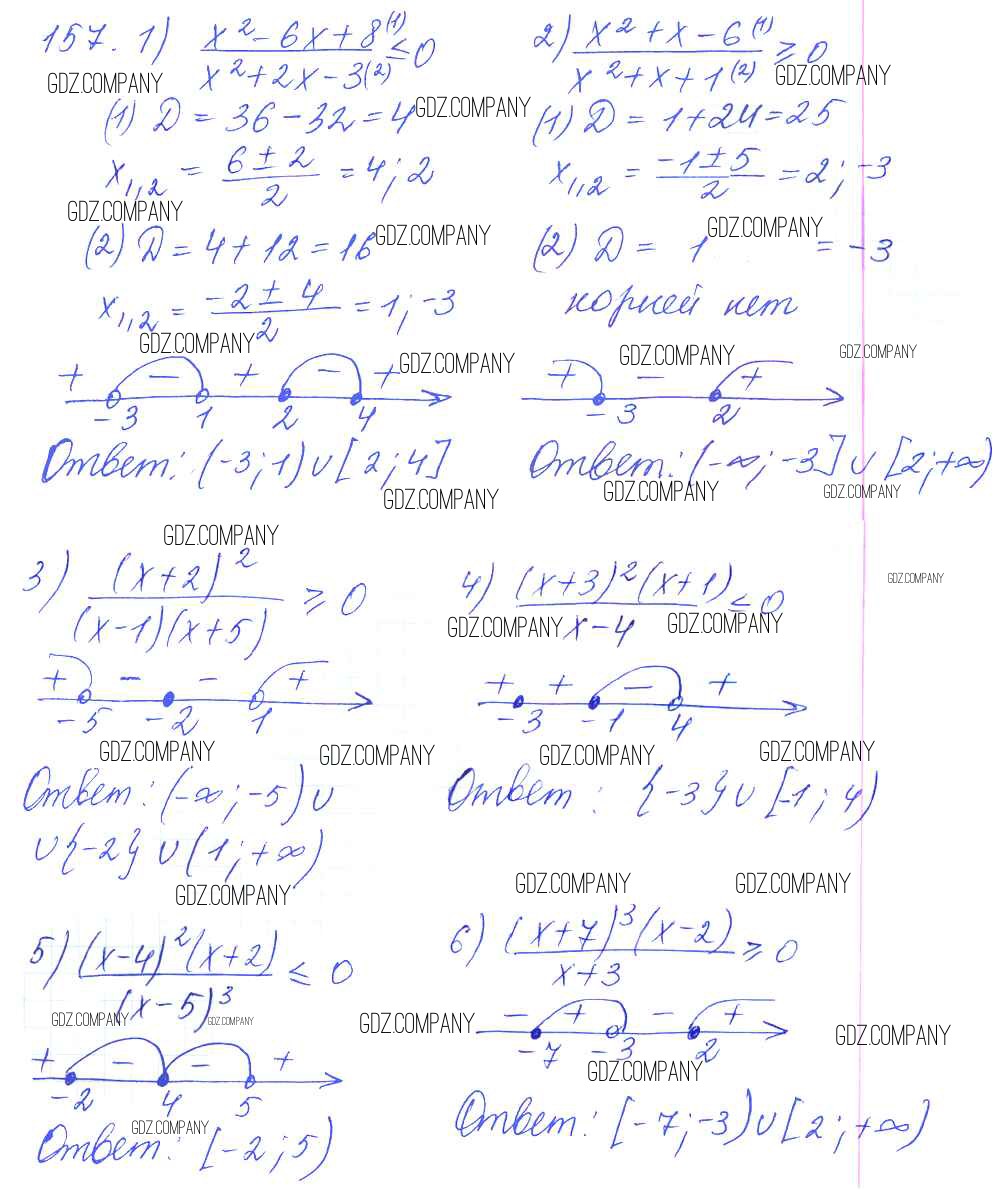 157. 1) (x² - 6x + 8 (1)) / (x² + 2x - 3 (2)) ≤ 0
GDZ.COMPANY
(1) D = 36 - 32 = 4
GDZ.COMPANY
x₁,₂ = (6 ± 2) / 2 = 4; 2
GDZ.COMPANY
(2) D = 4 + 12 = 16
GDZ.COMPANY
x₁,₂ = (-2 ± 4) / 2 = 1; -3
GDZ.COMPANY
GDZ.COMPANY
+ - + - +
-3 1 2 4
Ответ: (-3; 1) ∪ [2; 4]
GDZ.COMPANY
2) (x² + x - 6 (1)) / (x² + x + 1 (2)) ≥ 0
GDZ.COMPANY
(1) D = 1 + 24 = 25
x₁,₂ = (-1 ± 5) / 2 = 2; -3
GDZ.COMPANY
(2) D = 1 = -3
корней нет
GDZ.COMPANY
GDZ.COMPANY
+ - +
-3 2
Ответ: (-∞; -3] ∪ [2; +∞)
GDZ.COMPANY
GDZ.COMPANY
GDZ.COMPANY
3) (x + 2)² / ((x - 1)(x + 5)) ≥ 0
+ - - +
-5 -2 1
GDZ.COMPANY
GDZ.COMPANY
Ответ: (-∞; -5) ∪
∪ {-2} ∪ (1; +∞)
GDZ.COMPANY
GDZ.COMPANY
4) (x + 3)² (x + 1) / (x - 4) ≤ 0
GDZ.COMPANY
GDZ.COMPANY
+ + - +
-3 -1 4
GDZ.COMPANY
GDZ.COMPANY
Ответ: {-3} ∪ [-1; 4)
GDZ.COMPANY
GDZ.COMPANY
5) (x - 4)² (x + 2) / (x - 5)³ ≤ 0
GDZ.COMPANY
GDZ.COMPANY
+ - - +
-2 4 5
GDZ.COMPANY
Ответ: [-2; 5)
6) (x + 7)³ (x - 2) / (x + 3) ≥ 0
GDZ.COMPANY
GDZ.COMPANY
- + - +
-7 -3 2
GDZ.COMPANY
Ответ: [-7; -3) ∪ [2; +∞)